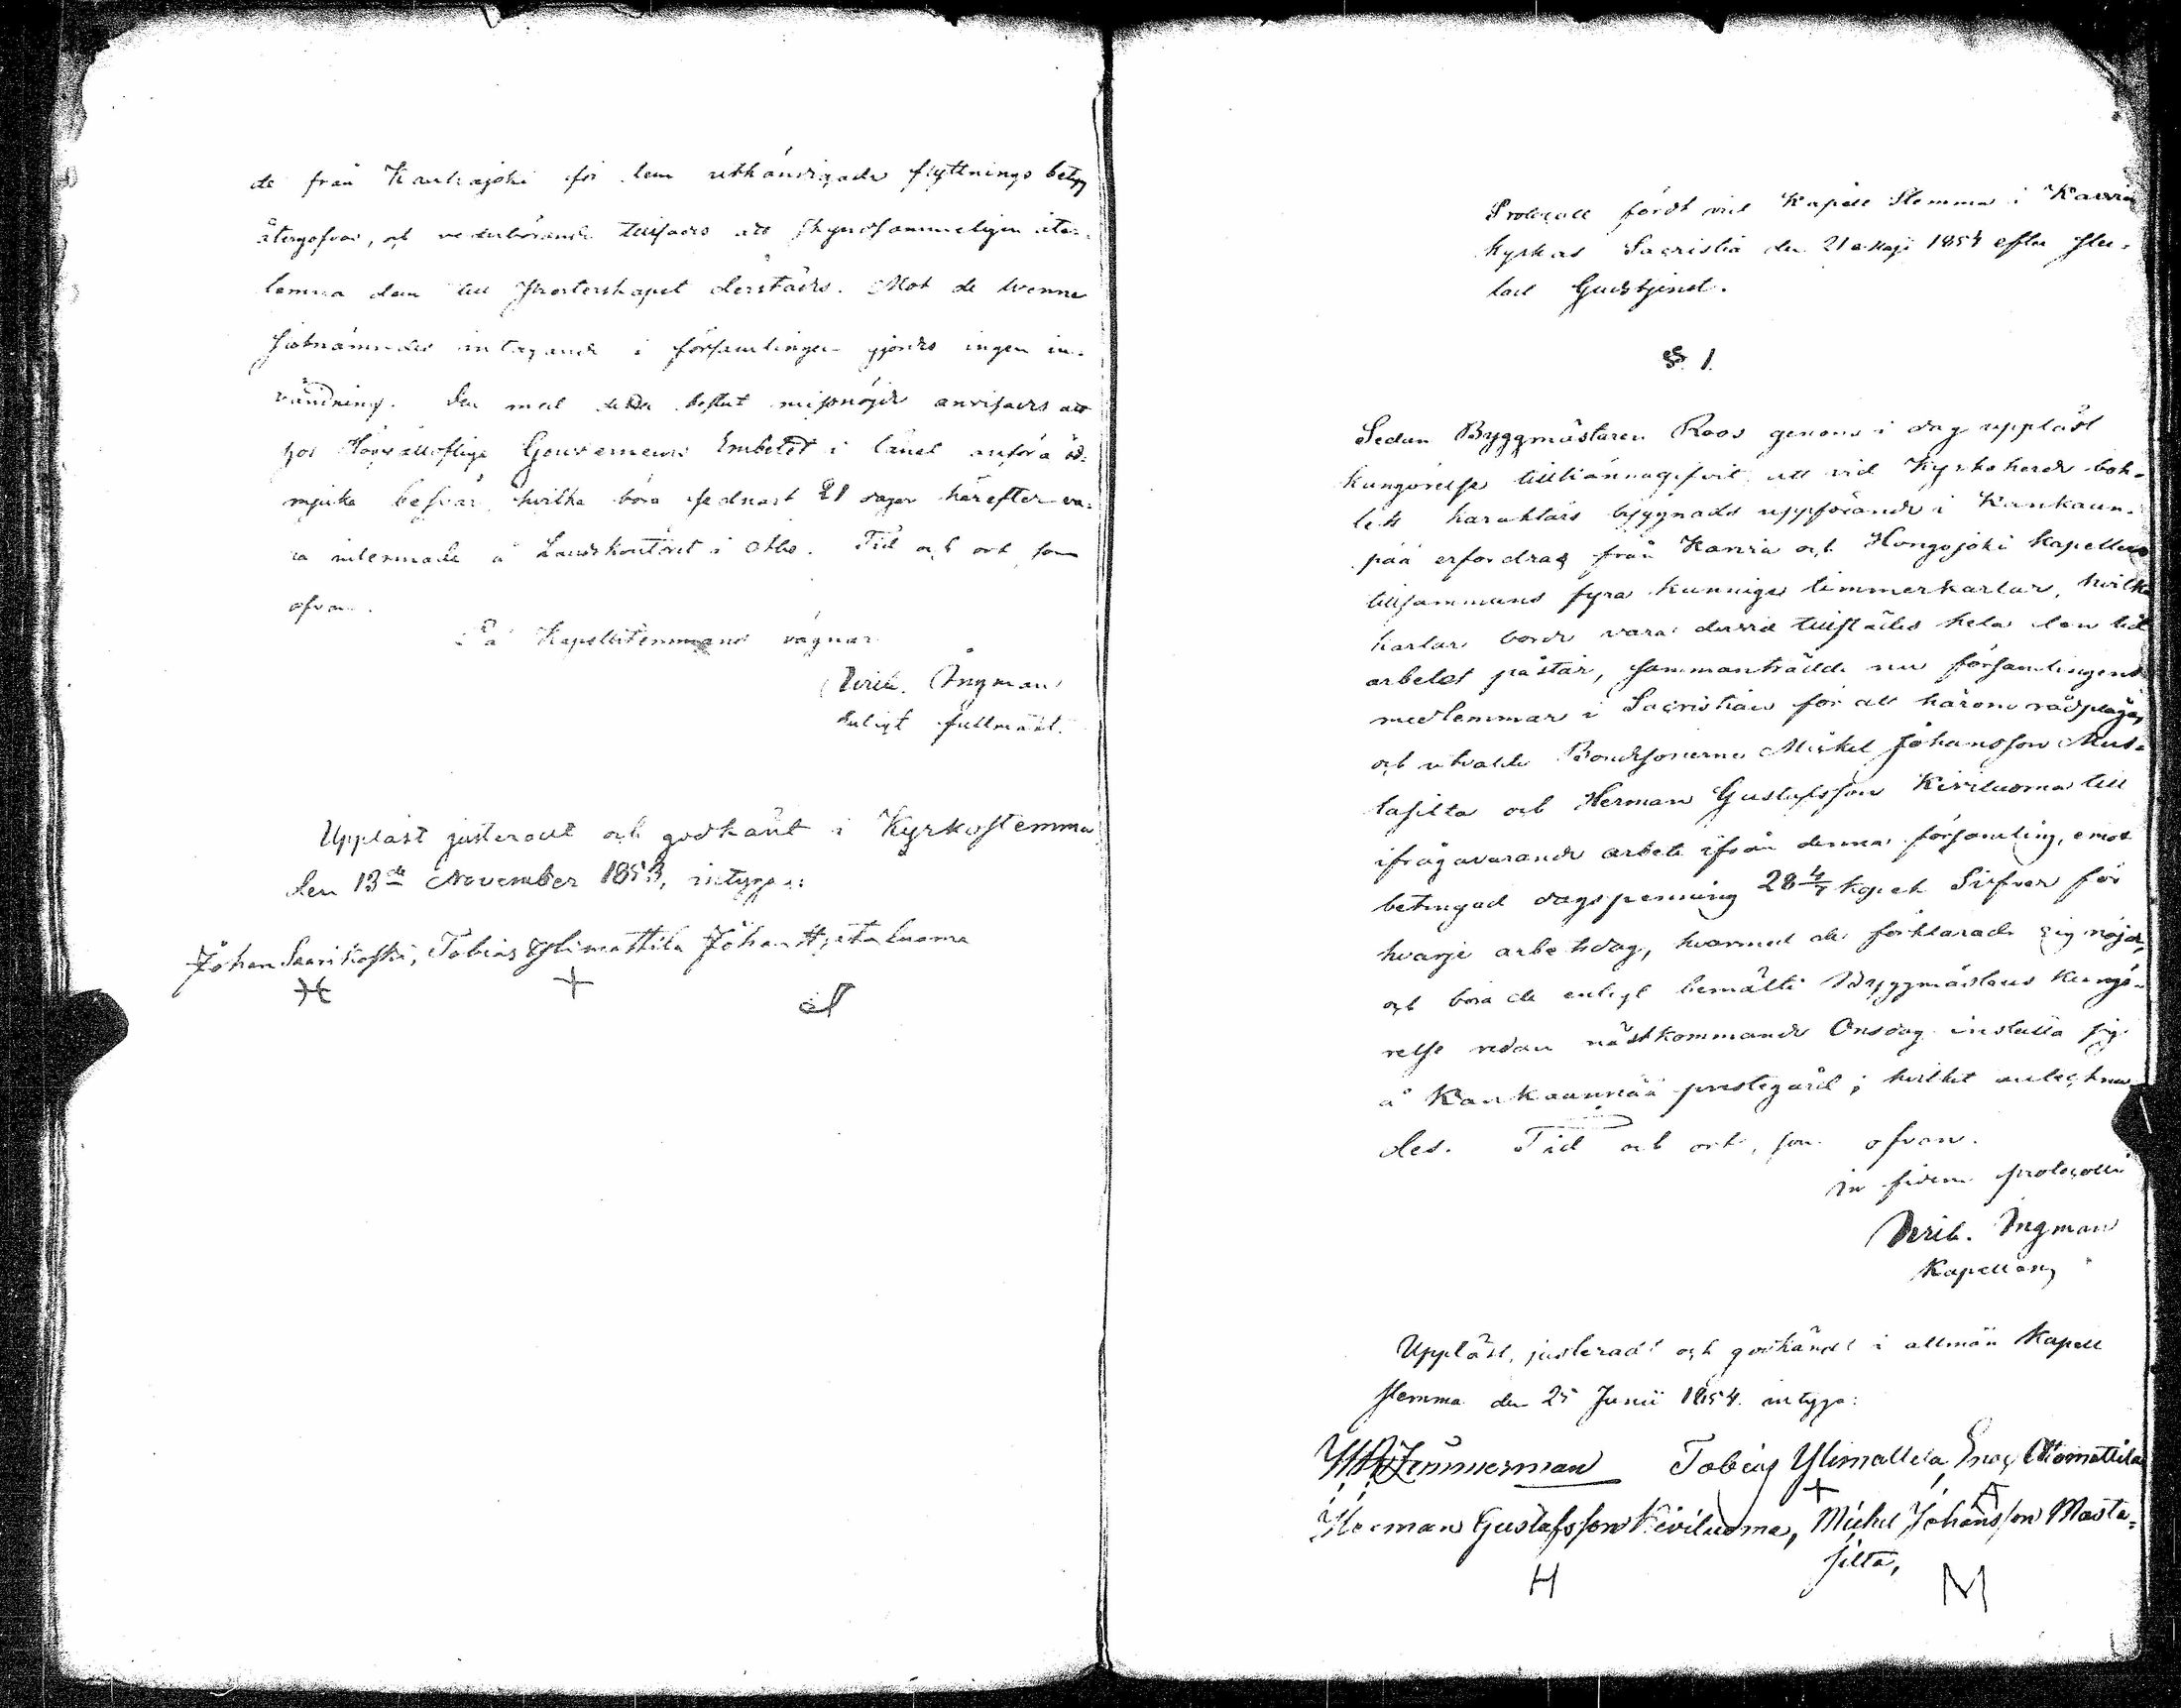 de från Kauhajoki för dem uthändigade flyttnings betyg
återgofvos, och vederbörande tillsades att skyndsammeligen åter-
lemna dem till Presterskapet derstädes. Mot de tvenne
sistnämndes intagande i församlingen gjordes ingen in-
vändning. Den med detta beslut missnöjde anvisades att
hos Höglofliga Gouverneurs Embetet i länet anföra öd-
mjuka besvär, hvilka böra sednast 21 dagar härefter va-
ra inlemnade å Landskontoret i Åbo. Tid och ort som
ofvan.
På Kapellstemmans vägnar
Ingman
enligt fullmakt.
Uppläst justeradt och godkänt i Kyrkostemma
den 13de November 1853, intyga:
Johan Saarikoski, Tobias Ylimattila Johan Hjetaluoma
Protocoll fördt vid Kapell Stemma i Karvia
kyrkas Sacristia den 21 Maji 1854 efter slu-
tad Gudstjenst.
§. 1.
Sedan Byggmästaren Roos genom i dag uppläst
kungörelse tillkännagifvit att vid Kyrkoherde bol-
lets karaktärs byggnads uppförande i Kankaan-
pää erfordras från Karvia och Hongojoki Kapeller
tillsammans fyra kunniga timmerkarlar, hvilka
karlar borde vara dervid tillstädes hela den tid
arbetet påstår, sammanträdde nu församlingens
medlemmar i Sacristian för att härom rådpläga,
och utvalde Bondesönerne Mickel Johansson Mus-
tasilta och Herman Gustafsson Kiviluoma till
ifrågavarande arbete ifrån denna församling, emot
betingad dagspenning 28 4/7 kopek Silfver för
hvarje arbetsdag, hvarmed de förklarade sig nöjda,
och böra de enligt bemälte Byggmästares kungö-
relse redan nästkommande Onsdag inställa sig
å Kankaanpää prestegård; hvilket anteckna-
des. Tid och ort, som ofvan.
In fidem protocolli
Ingman
Kapellan
Uppläst, justeradt och godkändt i allmän Kapell
stemma den 25 Junii 1854 intyga:
Zimmerman Tobias Ylimattila, Enoc Alamattila
Herman Gustafsson Kiviluoma, Mickel Johansson Musta-
silta,
H M